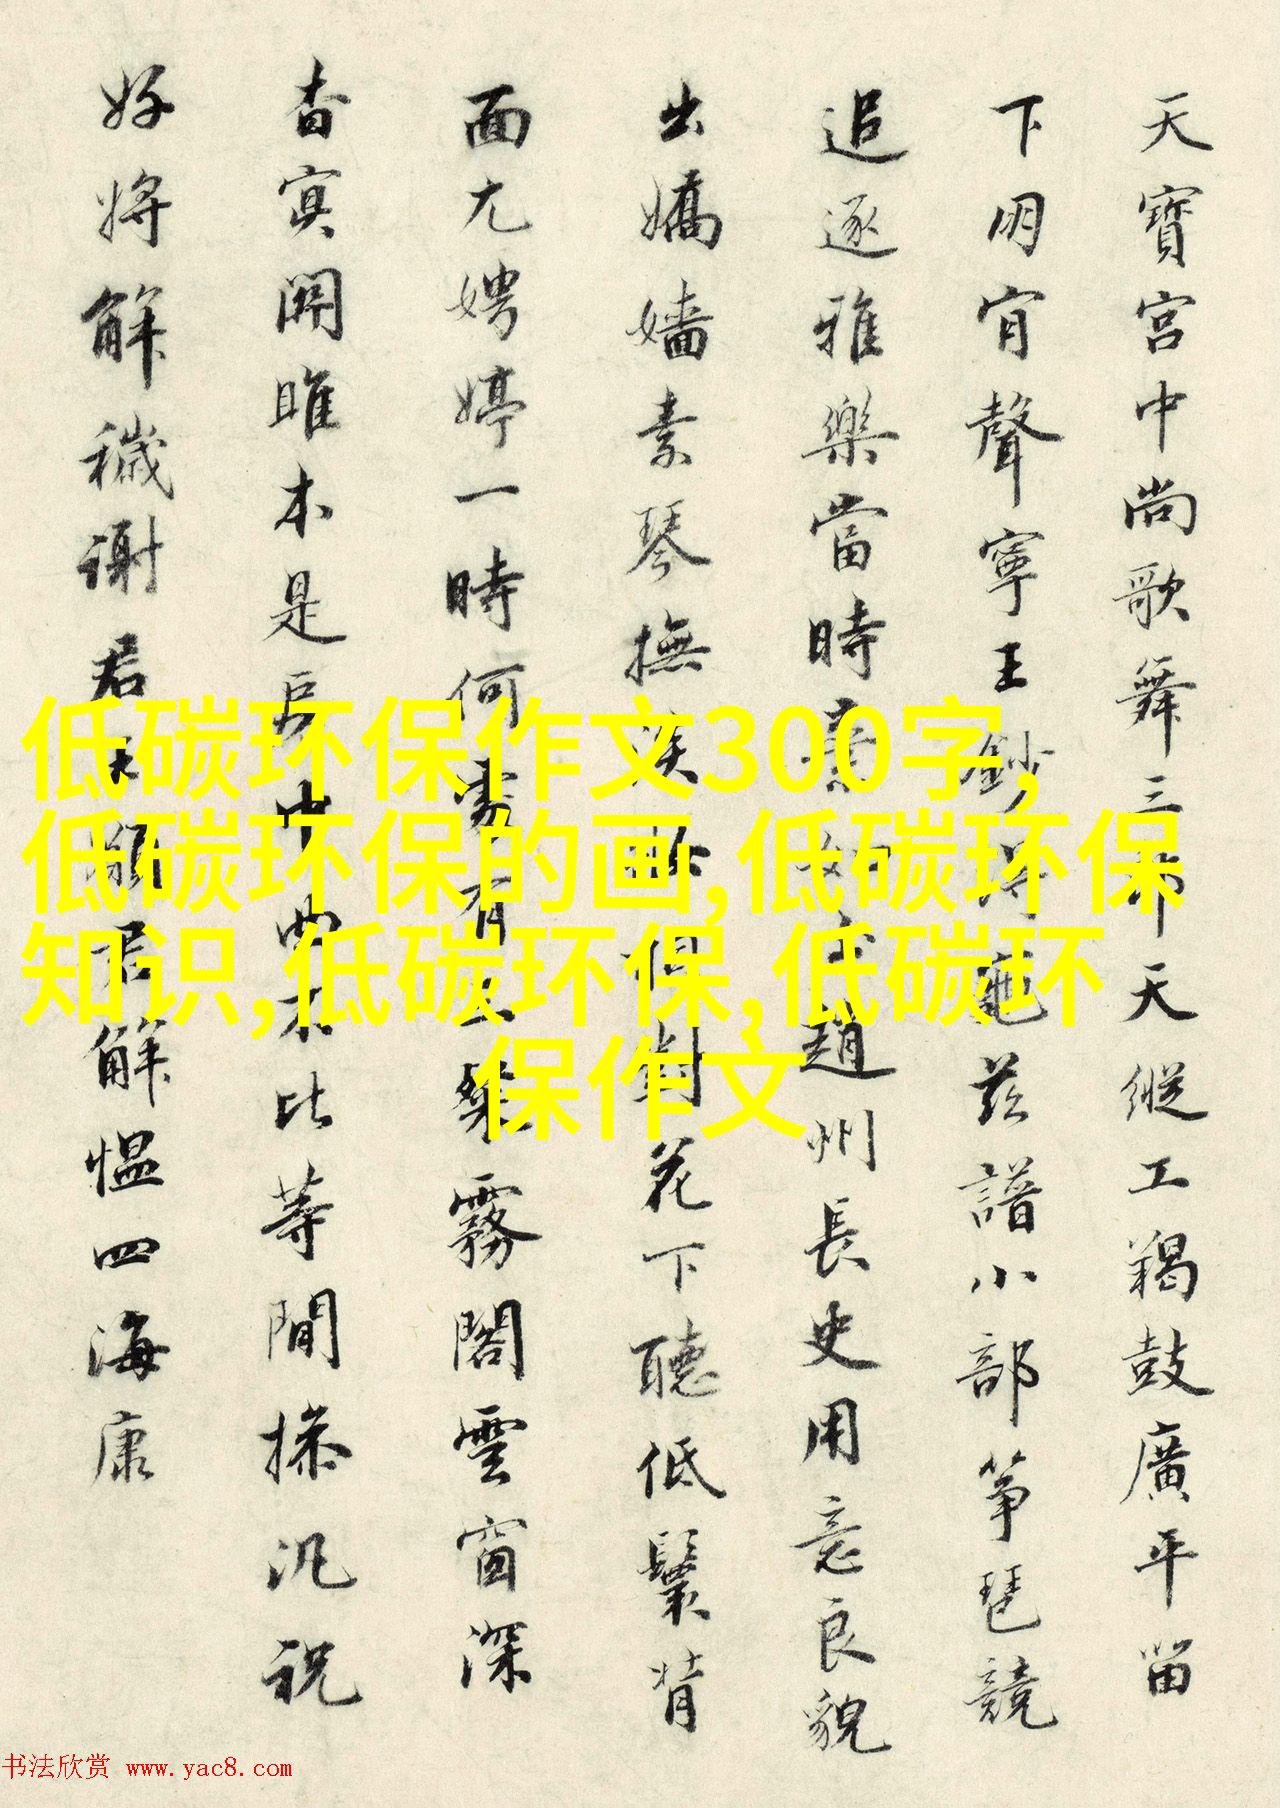 天寶宮中尚歌舞三天縱工羯鼓廣平
下明宵聲寧王鈔得龜茲譜小部箏琶競
追逐雅樂當時趙州長史用意良貌
出嬌嬙素琴撫但對花下聽低鬟背
面尤娉婷一時何處有此樂霧閣雲窗深
杳冥關雎本是房中曲不比等閒操汎祝
好將解穢謝君王願君解慍四海康
低碳环保作文300字,
低碳环保的画,低碳环保
知识,低碳环保,低碳环
保作文
书法欣赏 www.yac8.com